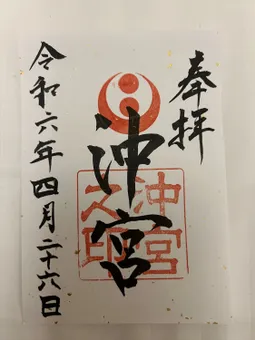 奉拝
沖宮
沖宮之印
令和六年四月二十六日